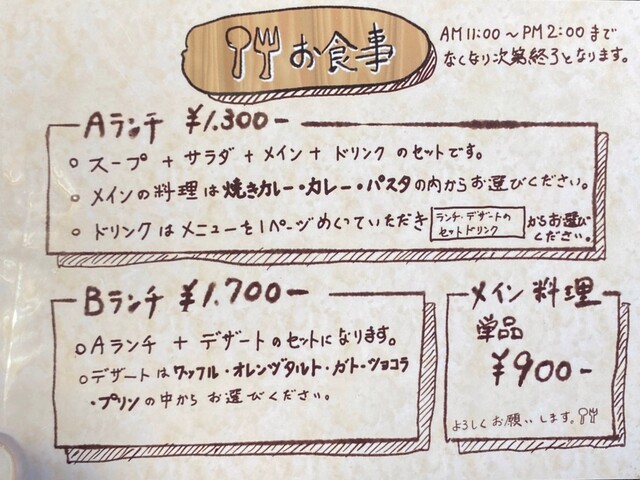 お食事
AM 11:00 ～ PM 2:00 まで
なくなり次第終了となります。
Aランチ ¥1.300-
○ スープ + サラダ + メイン + ドリンク のセットです。
○ メインの料理は焼きカレー・カレー・パスタの内からお選びください。
○ ドリンクはメニューを1ページめくっていただき
ランチ・デザートの
セットドリンク
からお選び
ください。
Bランチ ¥1.700-
○ Aランチ + デザートのセットになります。
○ デザートはワッフル・オレンヂタルト・ガトーショコラ
・プリンの中からお選びください。
メイン料理
単品
¥900-
よろしくお願いします。